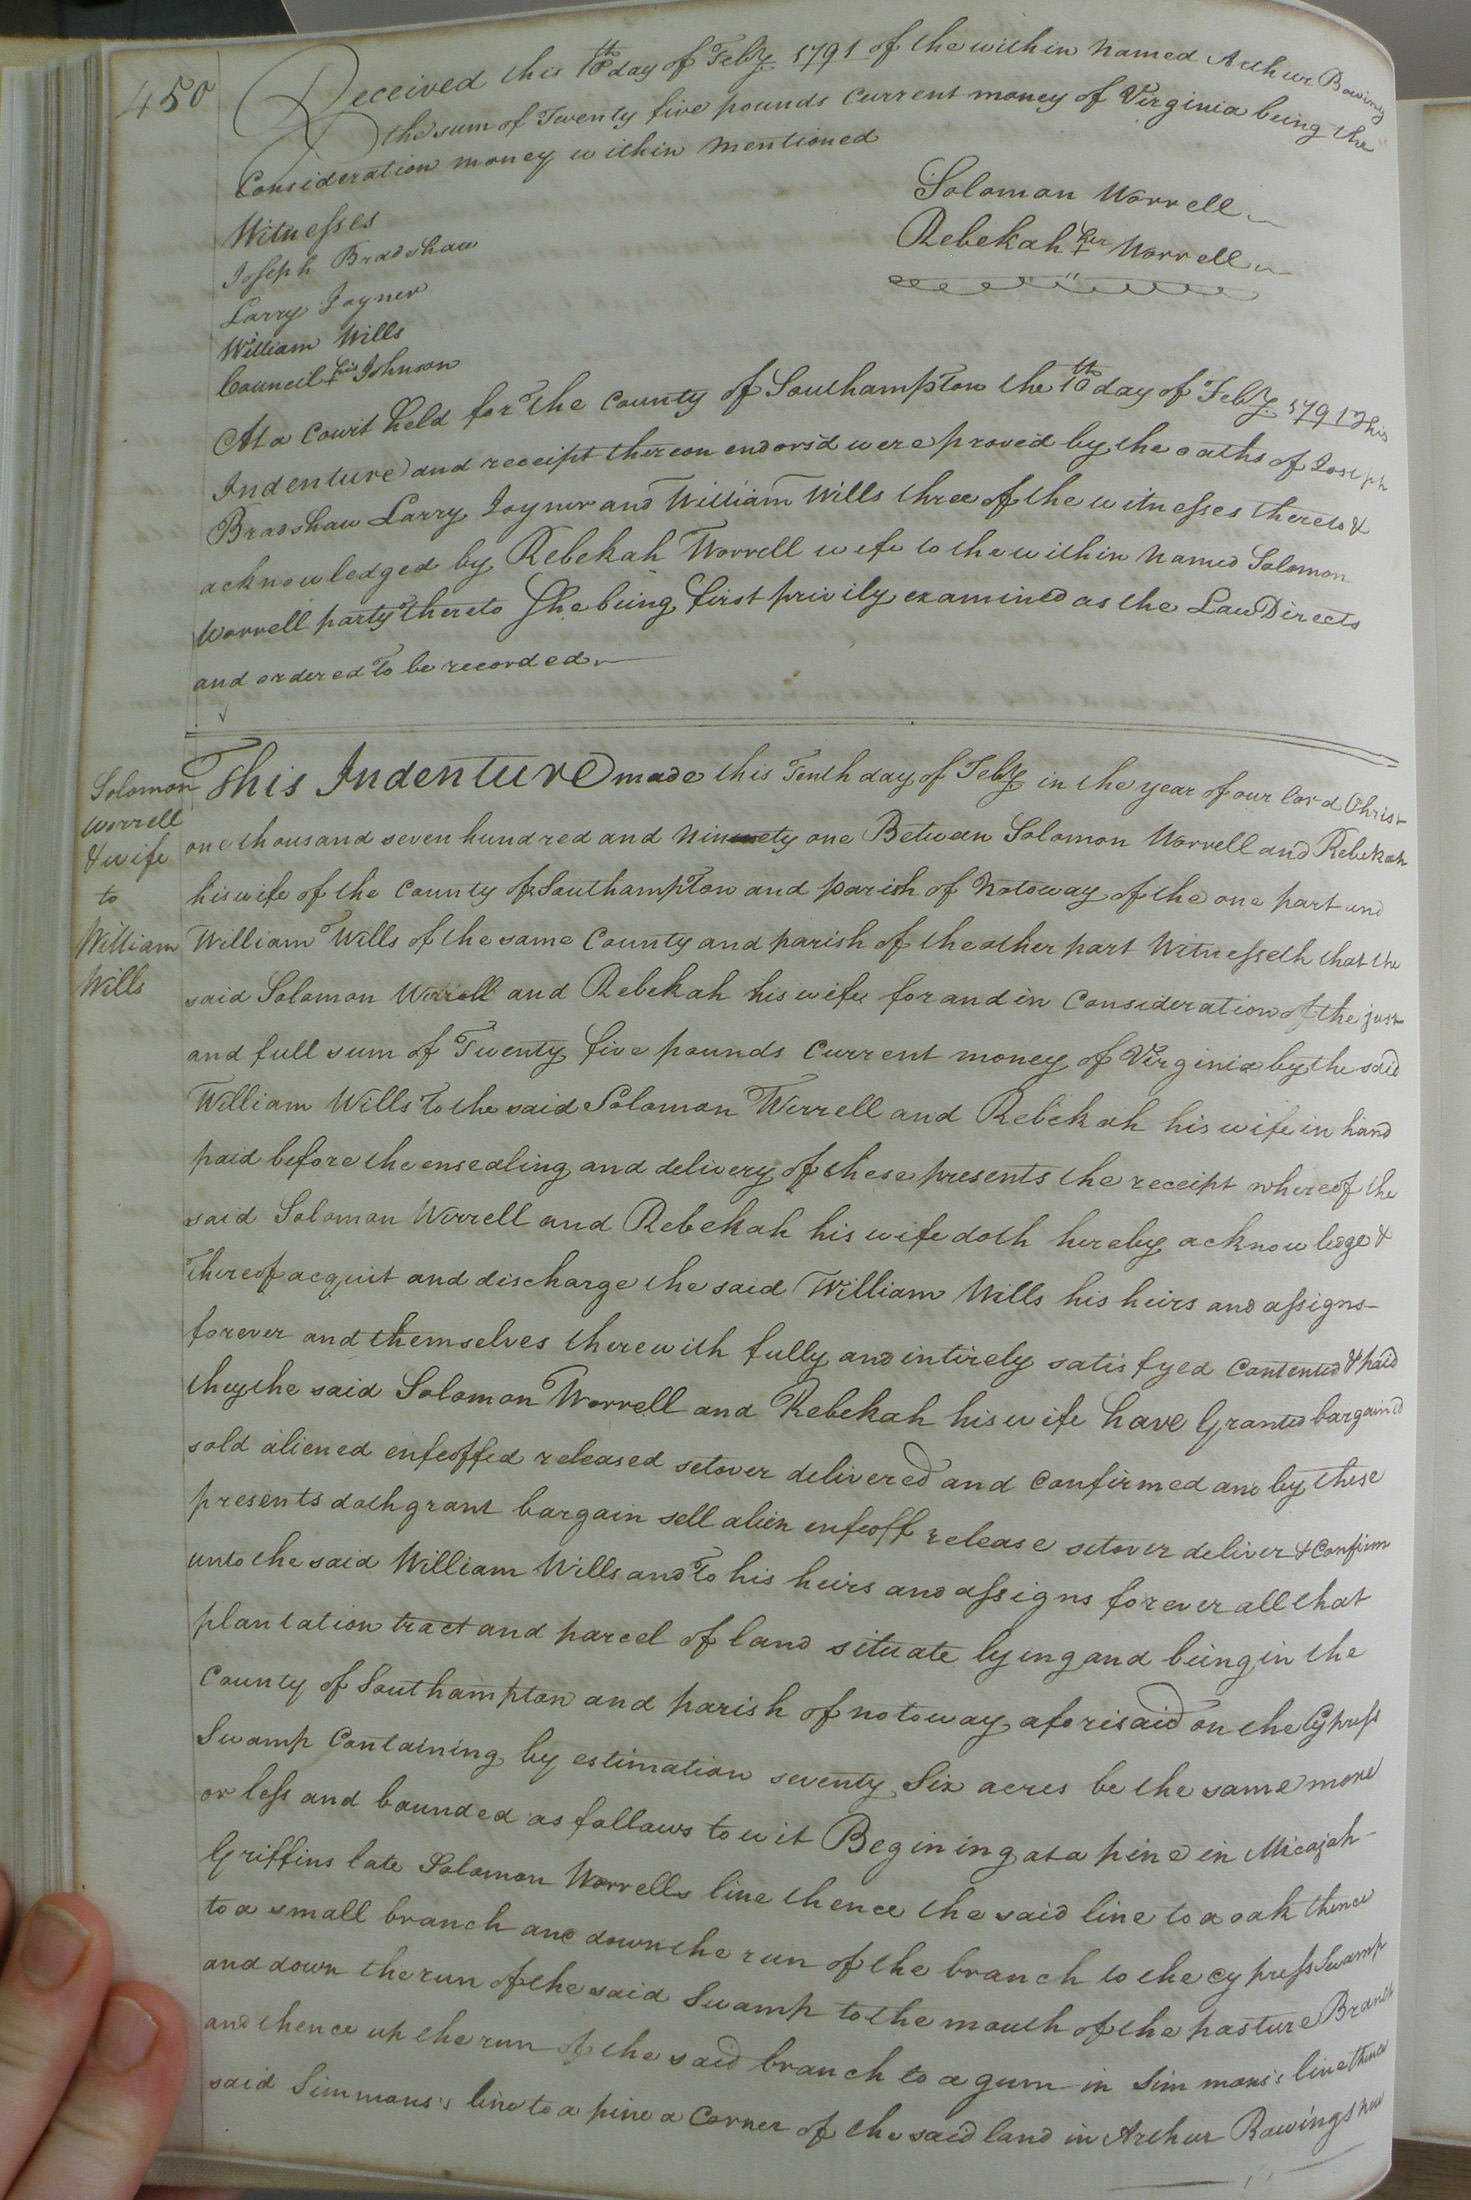 450
Received this 10th day of Feby. 1791 of the within named Arthur Bowing
the sum of Twenty five pounds Current money of Virginia being the
Consideration money within mentioned
Solomon Worrell
Rebekah her + Worrell
Witnesses
Joseph Bradshaw
Larry Joyner
William Wills
Council his + Johnson
At a Court held for the County of Southampton the 10th day of Feby. 1791 This
Indenture and receipt thereon endorsd were proved by the oaths of Joseph
Bradshaw Larry Joyner and William Wills three of the witnesses thereto &
acknowledged by Rebekah Worrell wife to the within Named Solomon
Worrell party thereto She being first privily examined as the Law Directs
and ordered To be recorded
Solomon
Worrell
& wife
to
William
Wills
This Indenture made this Tenth day of Feby in the year of our lord Christ
one thousand seven hundred and Ninety one Between Solomon Worrell and Rebekah
his wife of the County of Southampton and parish of Notoway of the one part and
William Wills of the same County and parish of the other part Witnesseth that the
said Solomon Worrell and Rebekah his wife for and in Consideration of the just
and full sum of Twenty five pounds Current money of Virginia by the said
William Wills To the said Solomon Werrell and Rebekah his wife in hand
paid before the ensealing and delivery of these presents the receipt whereof the
said Solomon Worrell and Rebekah his wife doth hereby acknowledge &
thereof acquit and discharge the said William Wills his heirs and assigns
forever and themselves therewith fully and intirely satisfyed Contented & paid
they the said Solomon Worrell and Rebekah his wife have Granted bargained
sold aliened enfeoffed released setover delivered and confirmed and by these
presents doth grant bargain sell alien enfeoff release setover deliver & Confirm
unto the said William Wills and To his heirs and assigns forever all that
plantation tract and parcel of land situate lying and being in the
County of Southampton and parish of notoway aforisaid on the Cypress
Swamp Containing by estimation seventy Six acres be the same more
or less and bounded as follows to wit Begining at a pine in Micajah
Griffins late Solomon Worrells line thence the said line to a oak thence
to a small branch and down the run of the branch to the cypress Swamp
and down the run of the said Swamp to the mouth of the pasture Branch
and thence up the run of the said branch to a gum in Simmons's line thence
said Simmons's line to a pine a Corner of the said land in Arthur Bowings new